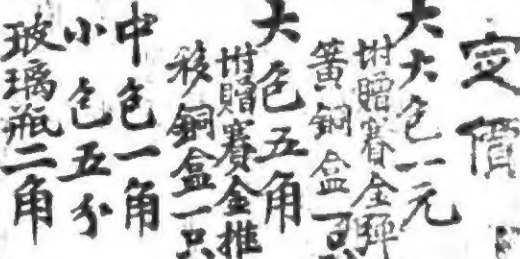 定價
大大包一元
附贈賽金彈
簧銅盒一只
大包五角
附贈賽金推
移銅盒一只
中包一角
小包五分
玻璃瓶二角